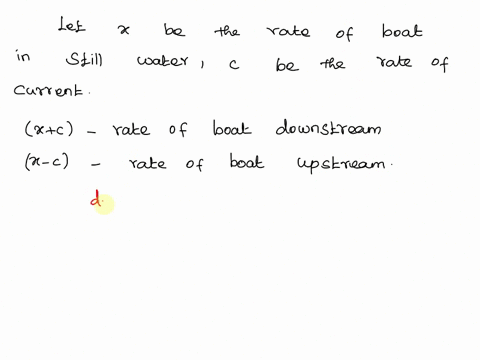 Let x be the rate of boat
in still water, c be the rate of
current.
(x+c) - rate of boat downstream
(x-c) - rate of boat upstream.
d